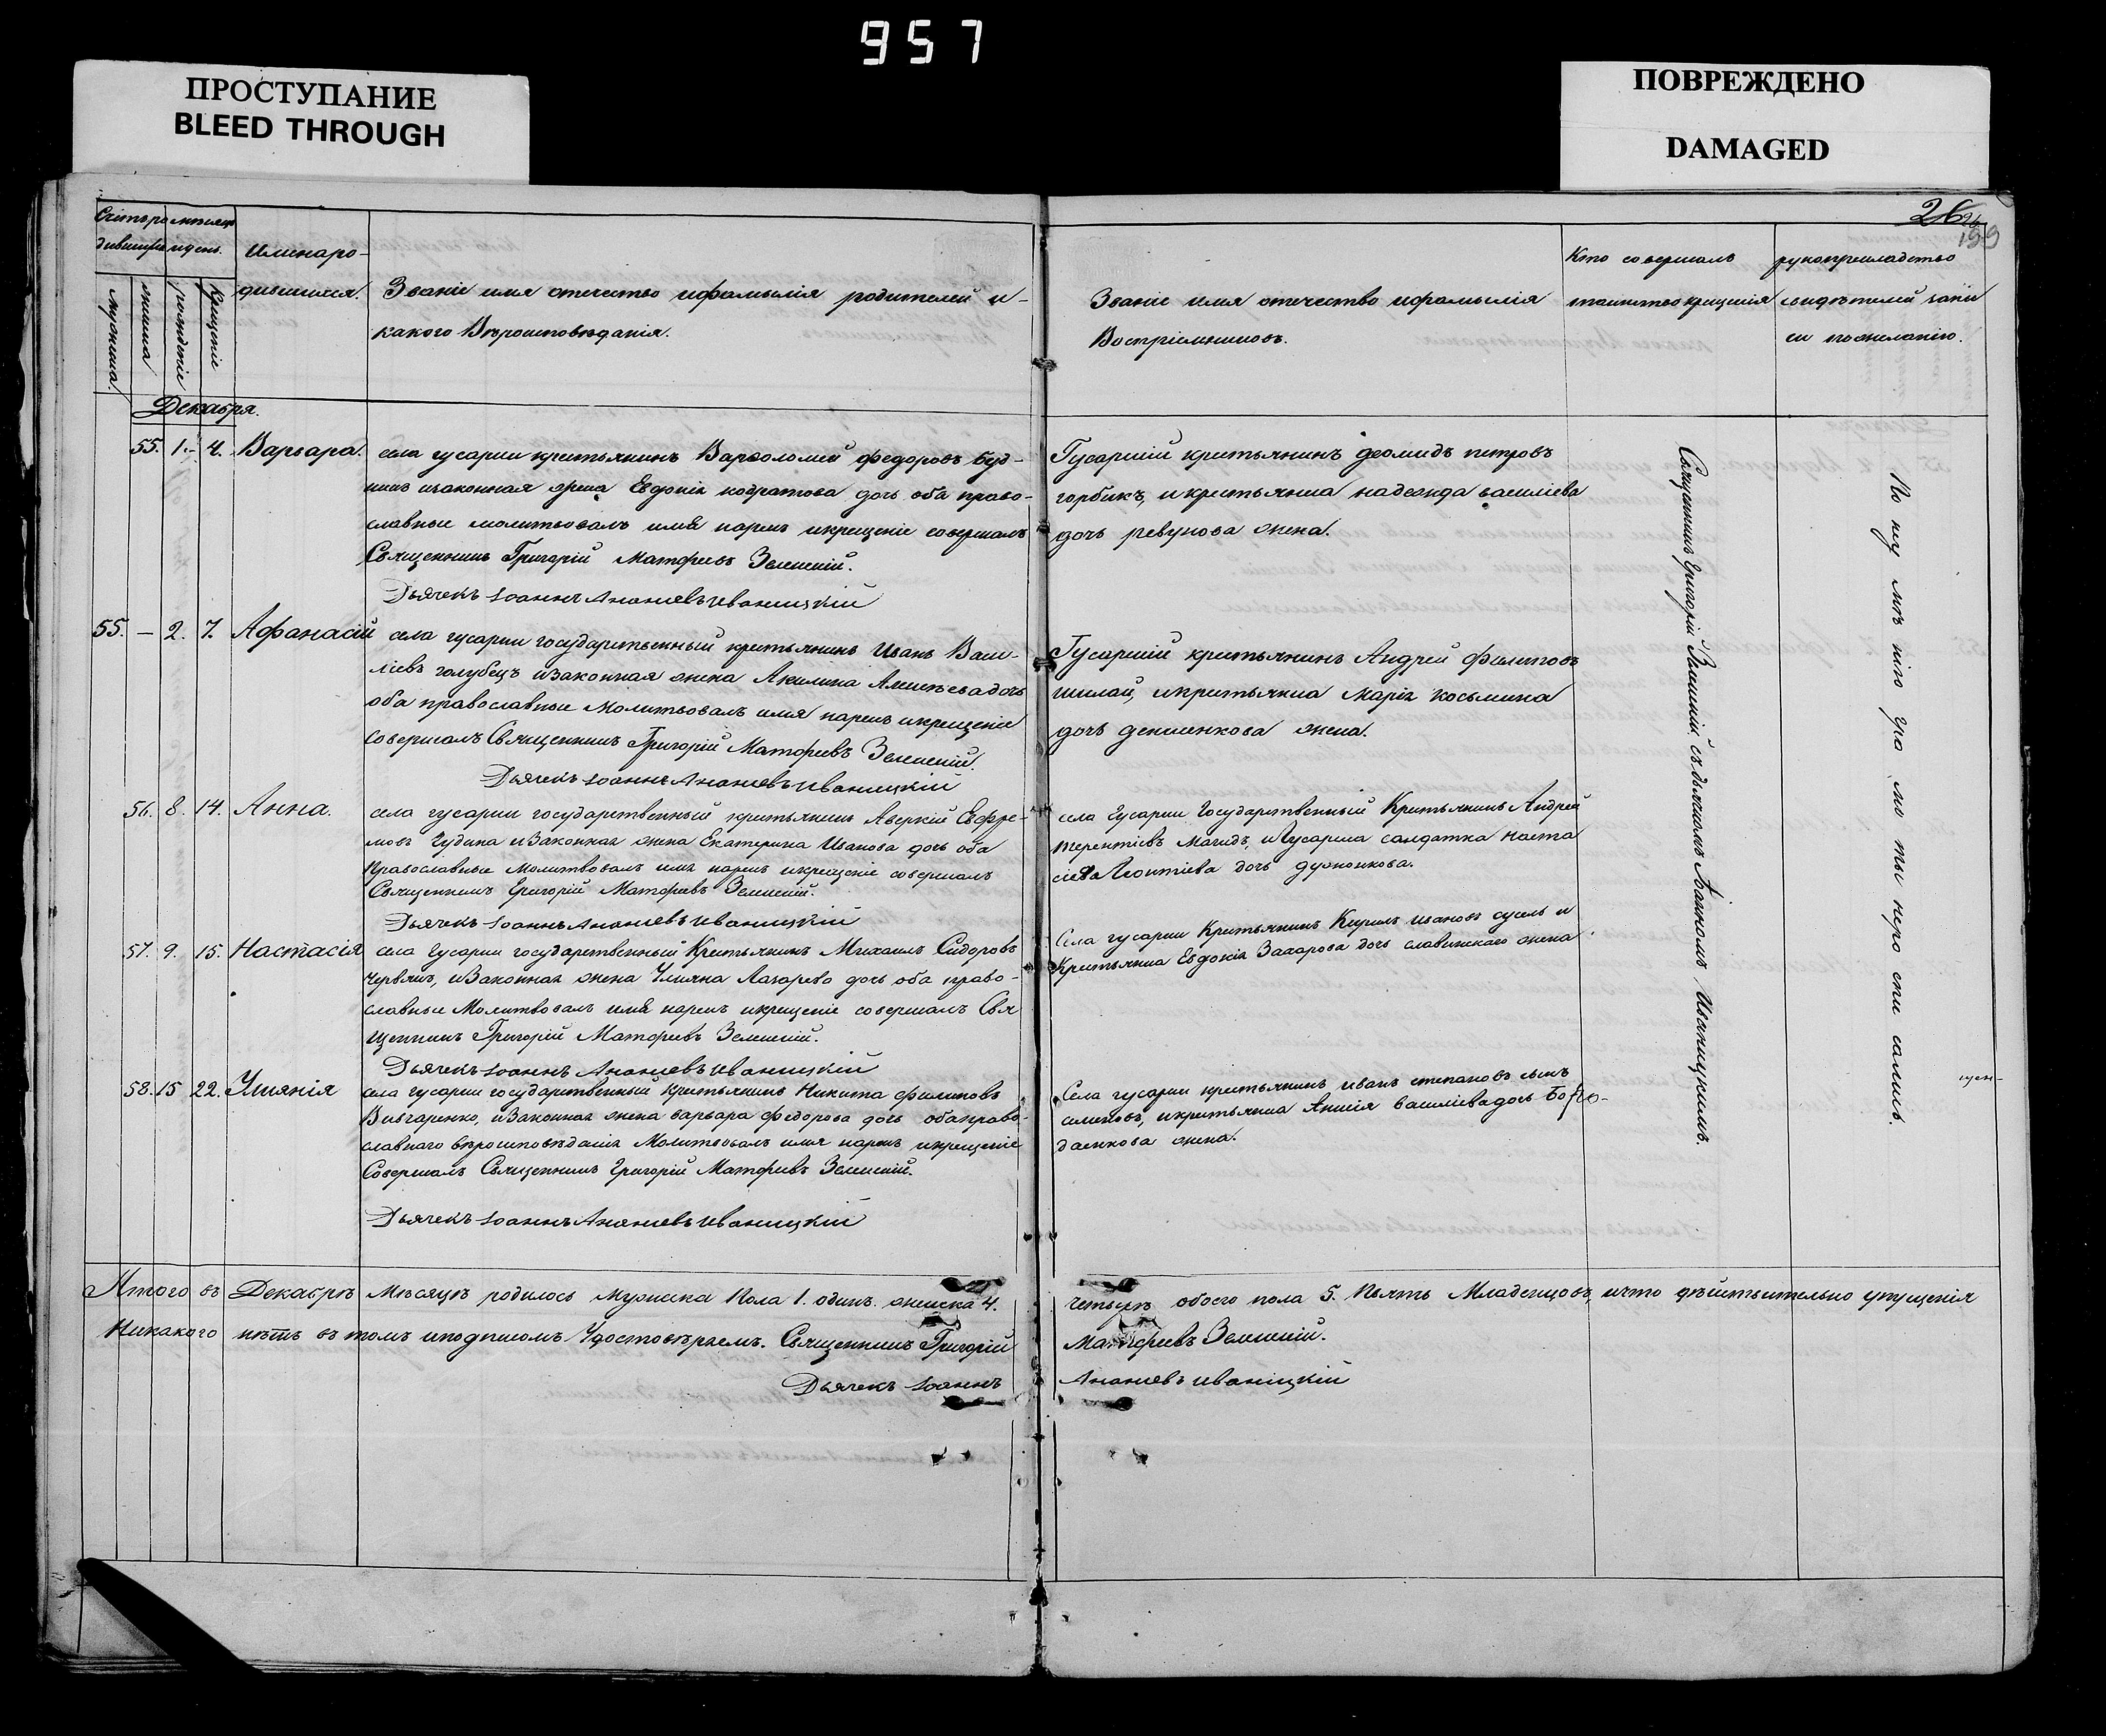 957
ПРОСТУПАНИЕ
BLEED THROUGH
ПОВРЕЖДЕНО
DAMAGED
26
199
Счетъ родившихся
мѣсяцъ и день.
мужеска.
женска
рожденіе
Крещеніе
Имена родившихся.
Званіе имя отечество и фамылія родителей и
какого Вѣроисповѣданія.
Званіе имя отечество и фамылія
Воспріемниковъ.
Кто совершалъ
таинство крещенія
рукоприкладство
свидѣтелей записи
по желанію.
Декабря.
55. 1. 4. Варвара.
села гусарки крестьянинъ Варѳоломей федоровъ буд-
никъ изаконная жена Евдокія кодратова дочь оба право-
славные молитвовалъ имя нарекъ икрещеніе совершалъ
Священникъ Григорій Матфеевъ Зеленскій.
Дьячекъ Іоаннъ Ананіевъ Иваницкій
Гусаркій крестьянинъ деомидъ петровъ
горбикъ, икрестьянка надежда василіева
дочь ревунова жена.
55. — 2. 7. Афанасій
села гусарки государственный крестьянинъ Иванъ Васи-
ліевъ голубецъ изаконная жена Акилина Алексѣева дочь
оба православные Молитвовалъ имя нарекъ икрещеніе
совершалъ Священникъ Григорій Матфеевъ Зеленскій.
Дьячекъ Іоаннъ Ананіевъ Иваницкій
Гусаркій крестьянинъ Андрей филиповъ
шилай, икрестьянка марія косьмина
дочь денисенкова жена.
56. 8. 14. Анна.
села гусарки государственный крестьянинъ Аверкій Евфре-
мовъ Чудина изаконная жена Екатерина Иванова дочь оба
Православные Молитвовалъ имя нарекъ икрещеніе совершалъ
Священникъ Григорій Матфеевъ Зеленскій.
Дьячекъ Іоаннъ Ананіевъ Иваницкій
села Гусарки Государственный Крестьянинъ Андрей
терентіевъ Магидъ, и Гусарка салдатка Наста
сіева Леонтіева дочь
57. 9. 15. Настасія
села Гусарки государственный Крестьянинъ Михаилъ Сидоровъ
Червякъ, изаконная жена Улияна Лазарева дочь оба право-
славные Молитвовалъ имя нарекъ икрещеніе совершалъ Свя
щенникъ Григорій Матфеевъ Зеленскій.
Дьячекъ Іоаннъ Ананіевъ Иваницкій
Села гусарки Крестьянинъ Кирилъ ивановъ сусель и
Крестьянка Евдокія Захарова дочь славинскаго жена
58. 15 22. Улиянія
села гусарки государственный крестьянинъ Никита филиповъ
Вивчаренко, изаконная жена варвара Федорова дочь оба право-
славнаго вѣроисповѣданія Молитвовалъ имя нарекъ икрещеніе
Совершалъ Священникъ Григорій Матфеевъ Зеленскій.
Дьячекъ Іоаннъ Ананіевъ Иваницкій
Села гусарки крестьянинъ иванъ степановъ сынъ
семеновъ, икрестьянка Анисія василіева дочь Бо
даенкова жена.
Священникъ Григорій Зеленскій съ дьячкомъ Іоанномъ Иваницкимъ.
Итого въ Декабрѣ Мѣсяцѣ родилось мужеска Пола 1. одинъ. женска 4.
четыре обоего пола 5. пьять Младенцовъ, ичто дѣйствительно упущенія
Никакого нѣтъ въ томъ иподписомъ Удостовѣряемъ. Священникъ Григорій
Матфеевъ Зеленскій.
Дьячекъ Іоаннъ
Ананіевъ Иваницкій